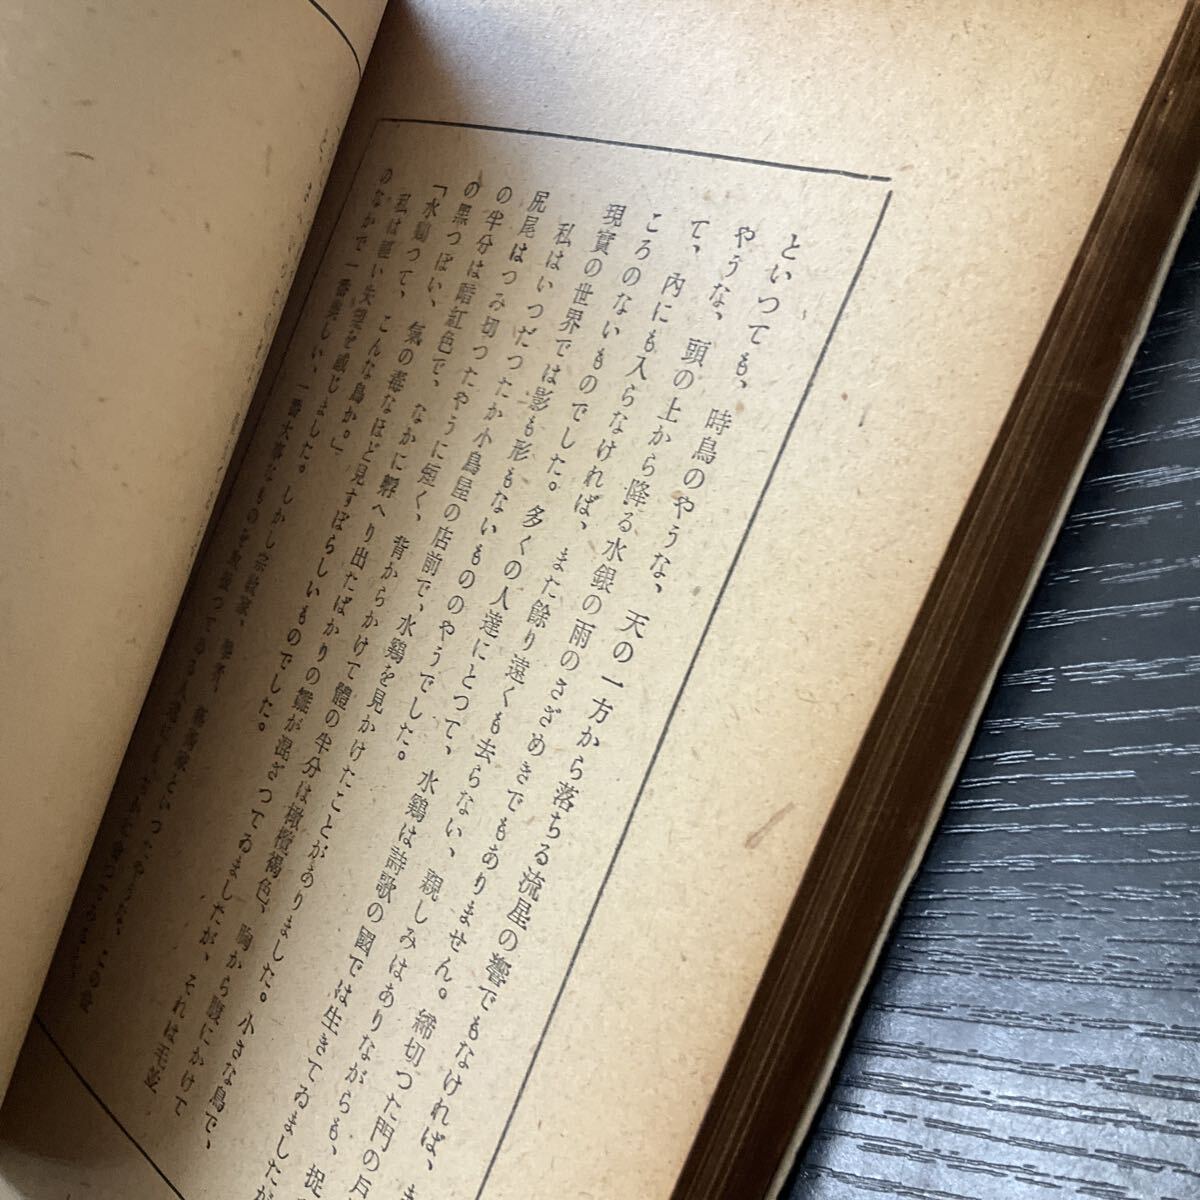 といつても、時鳥のやうな、天の一方から落ちる流星の響でもなければ、
やうな、頭の上から降る水銀の雨のさざめきでもありません。締切つた門の戸
て、内にも入らなければ、また餘り遠くも去らない、親しみはありながらも、捉
ころのないものでした。多くの人達にとつて、水鷄は詩歌の國では生きてゐましたが
現實の世界では影も形もないもののやうでした。
私はいつだつたか小鳥屋の店前で、水鷄を見かけたことがありました。小さな鳥で、
尻尾はつみ切つたやうに短く、背からかけて體の半分は橄欖褐色、胸から腹にかけて
の半分は暗紅色で、なかに孵へり出たばかりの雛が混ざつてゐましたが、それは毛並
の黒つぽい、氣の毒なほど見すぼらしいものでした。
「水鷄つて、こんな鳥か。」
私は輕い失望を感じました。しかし宗教家、學者、
のなかで一番美しい、一番大事なものを